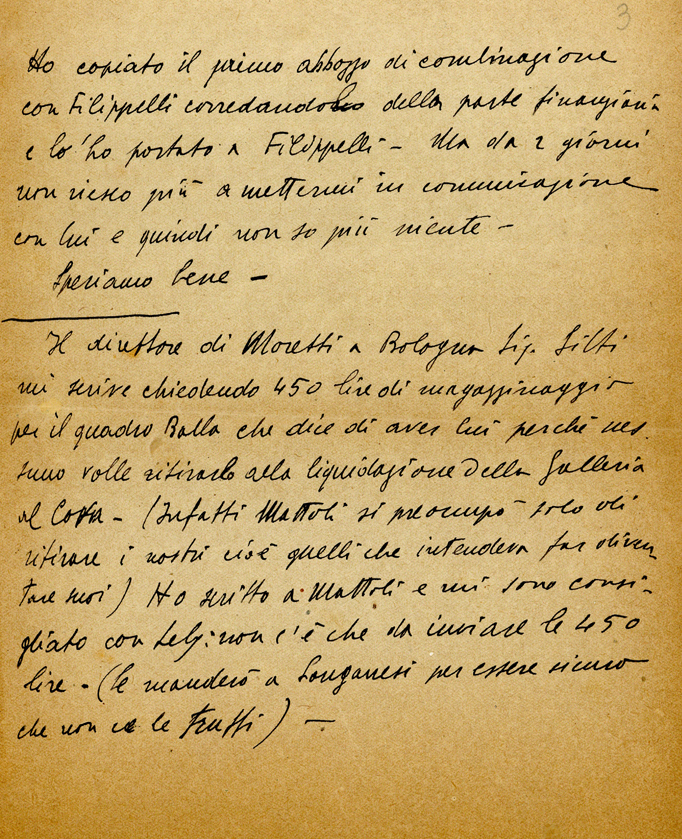 3
Ho copiato il primo abbozzo di combinazione
con Filippelli corredandolo della parte finanziaria
e lo ho portato a Filippelli - Ma da 2 giorni
non riesco più a mettermi in comunicazione
con lui e quindi non so più niente -
Speriamo bene -
Il direttore di Moretti a Bologna Sig.
mi scrive chiedendo 450 lire di magazzinaggio
per il quadro Balla che dice di aver lui perché nes-
suno volle ritirarlo alla liquidazione della Galleria
al Corso - (Infatti Mattoli si preoccupò solo di
ritirare i nostri cioè quelli che intendeva far diven-
tare suoi) Ho scritto a Mattoli e mi sono consi-
gliato con : non c'è che da inviare le 450
lire - (le manderò a Longanesi per essere sicuro
che non ce le truffi) -